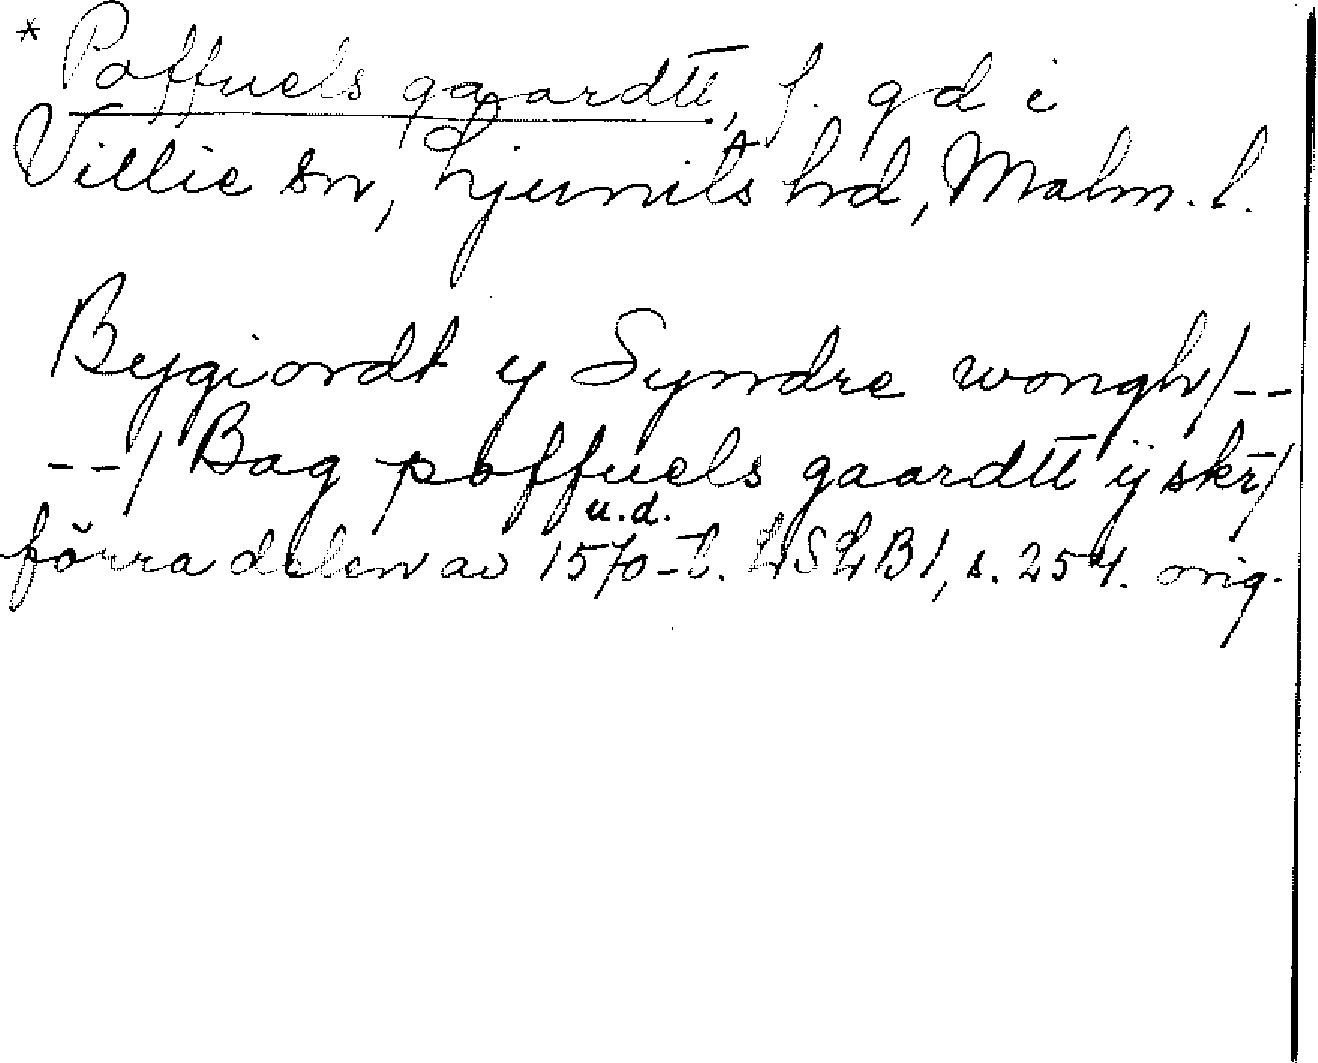 * Poffuels gaardtt, f. gd i
Villie sn, Ljunits hd, Malm. l.
Bygiordt y Syndre wongh/--
--/ Bag poffuels gaardtt ij skr/
u.d.
förra delen av 1570-t. LSLB1, s. 254. orig.